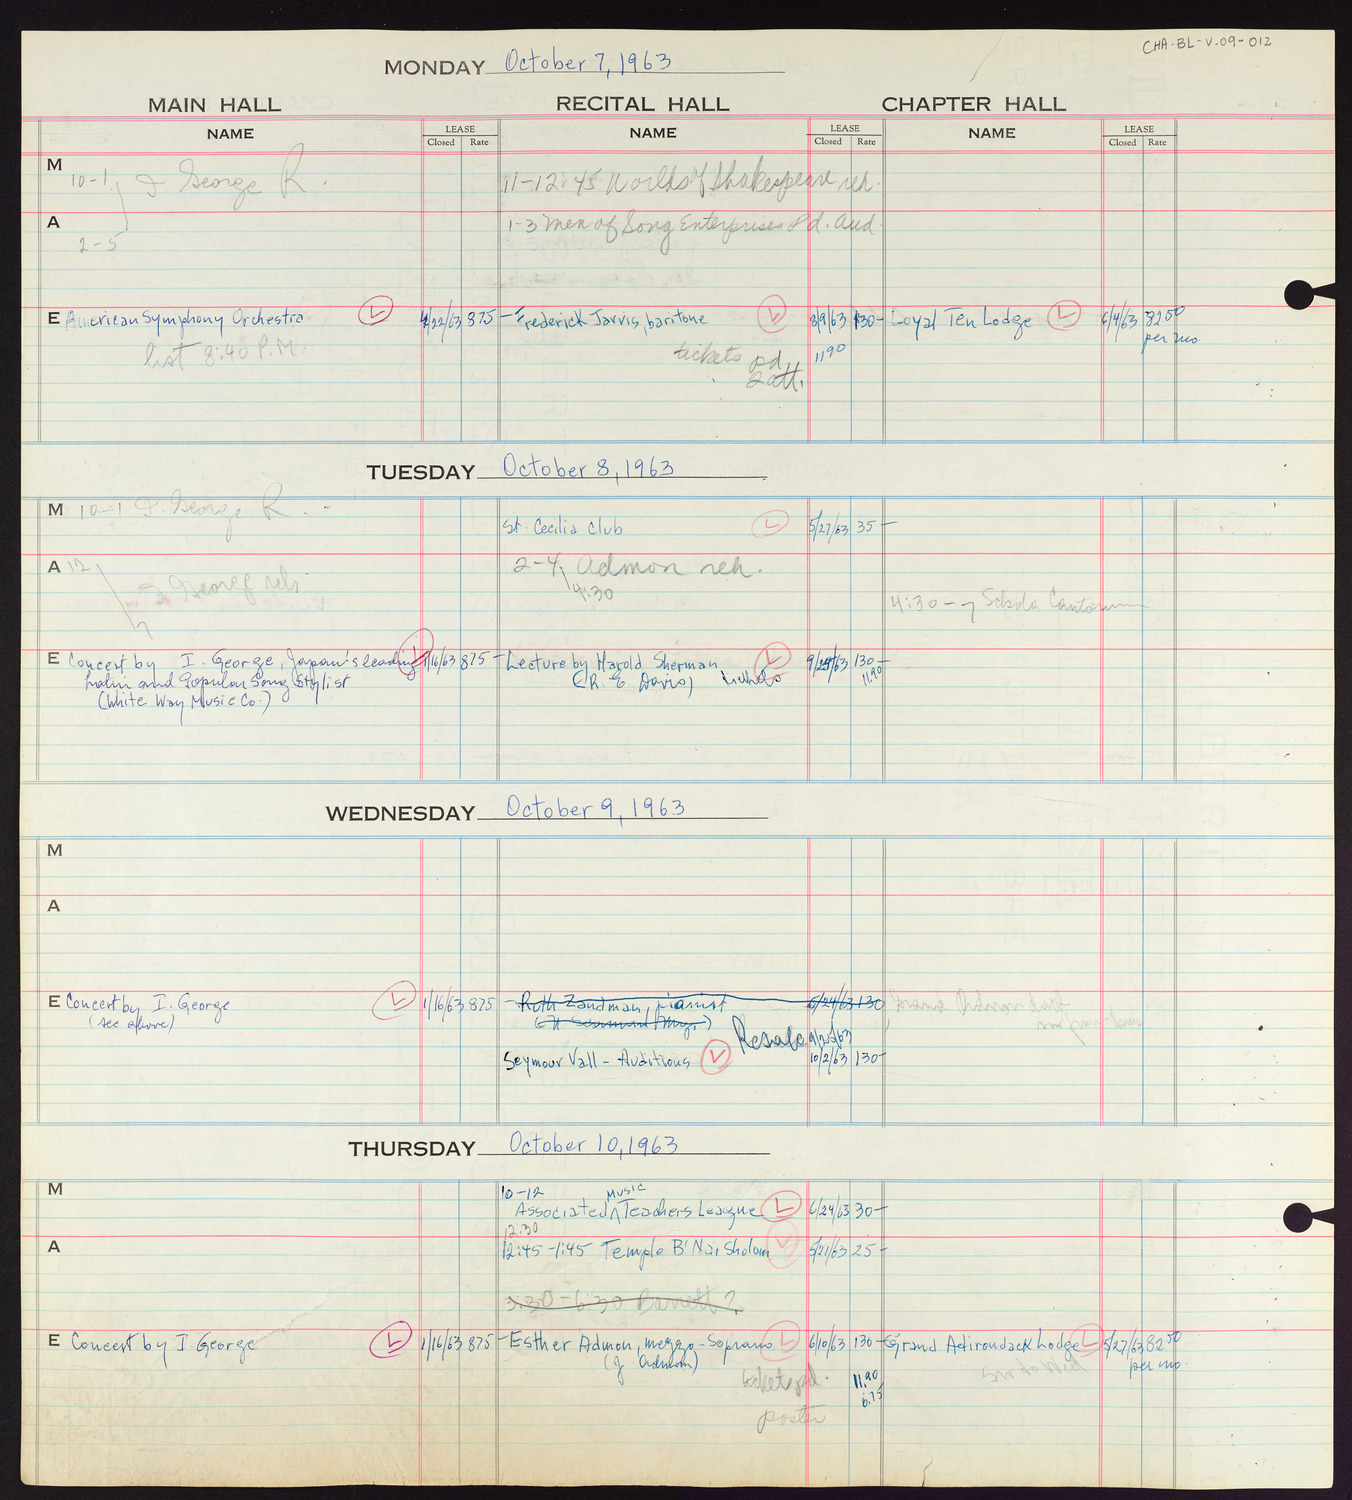 CHA-BL-V.09-012
MONDAY October 7, 1963
MAIN HALL RECITAL HALL CHAPTER HALL
NAME LEASE NAME LEASE NAME LEASE
Closed Rate Closed Rate Closed Rate
M 10-1 I George R. 11-12:45 Worlds of Shakespeare reh.
A 1-3 Men of Song Enterprises Pd. Aud.
2-5
E American Symphony Orchestra L 4/22/63 875- Frederick Jarvis, baritone L 8/9/63 130- Loyal Ten Lodge L 6/4/63 82 50
per mo.
8:40 P.M. tickets pd. 11 90
2 att.
TUESDAY October 8, 1963
M 10-1 I. George R.
St. Cecilia Club L 5/27/63 35-
A 12 2-4 Admon reh.
4:30
7 I George reh. 4:30-7 Schola Cantorum
E Concert by I. George, Japan's leading L 1/16/63 875- Lecture by Harold Sherman L 9/24/63 130-
Latin and Popular Song Stylist (R. E. Davis) tickets 11.90
(White Way Music Co.)
WEDNESDAY October 9, 1963
M
A
E Concert by I. George L 1/16/63 875- Ruth Zandman, pianist 6/24/63 130
(see above) Mgr.)
Resale 9/25/63
Seymour Vall - Auditions L 10/2/63 130-
THURSDAY October 10, 1963
M 10-12 Music
Associated ^ Teachers League L 6/24/63 30-
12:30
A 12:45-1:45 Temple B'Nai Sholom L 5/21/63 25-
3:30-6:30 Barrett?
E Concert by I. George L 1/16/63 875- Esther Admon, mezzo-Soprano L 6/10/63 130- Grand Adirondack Lodge L 5/27/63 82 50
(J. Admon) per mo.
tickets pd. 11.90
6.75
poster